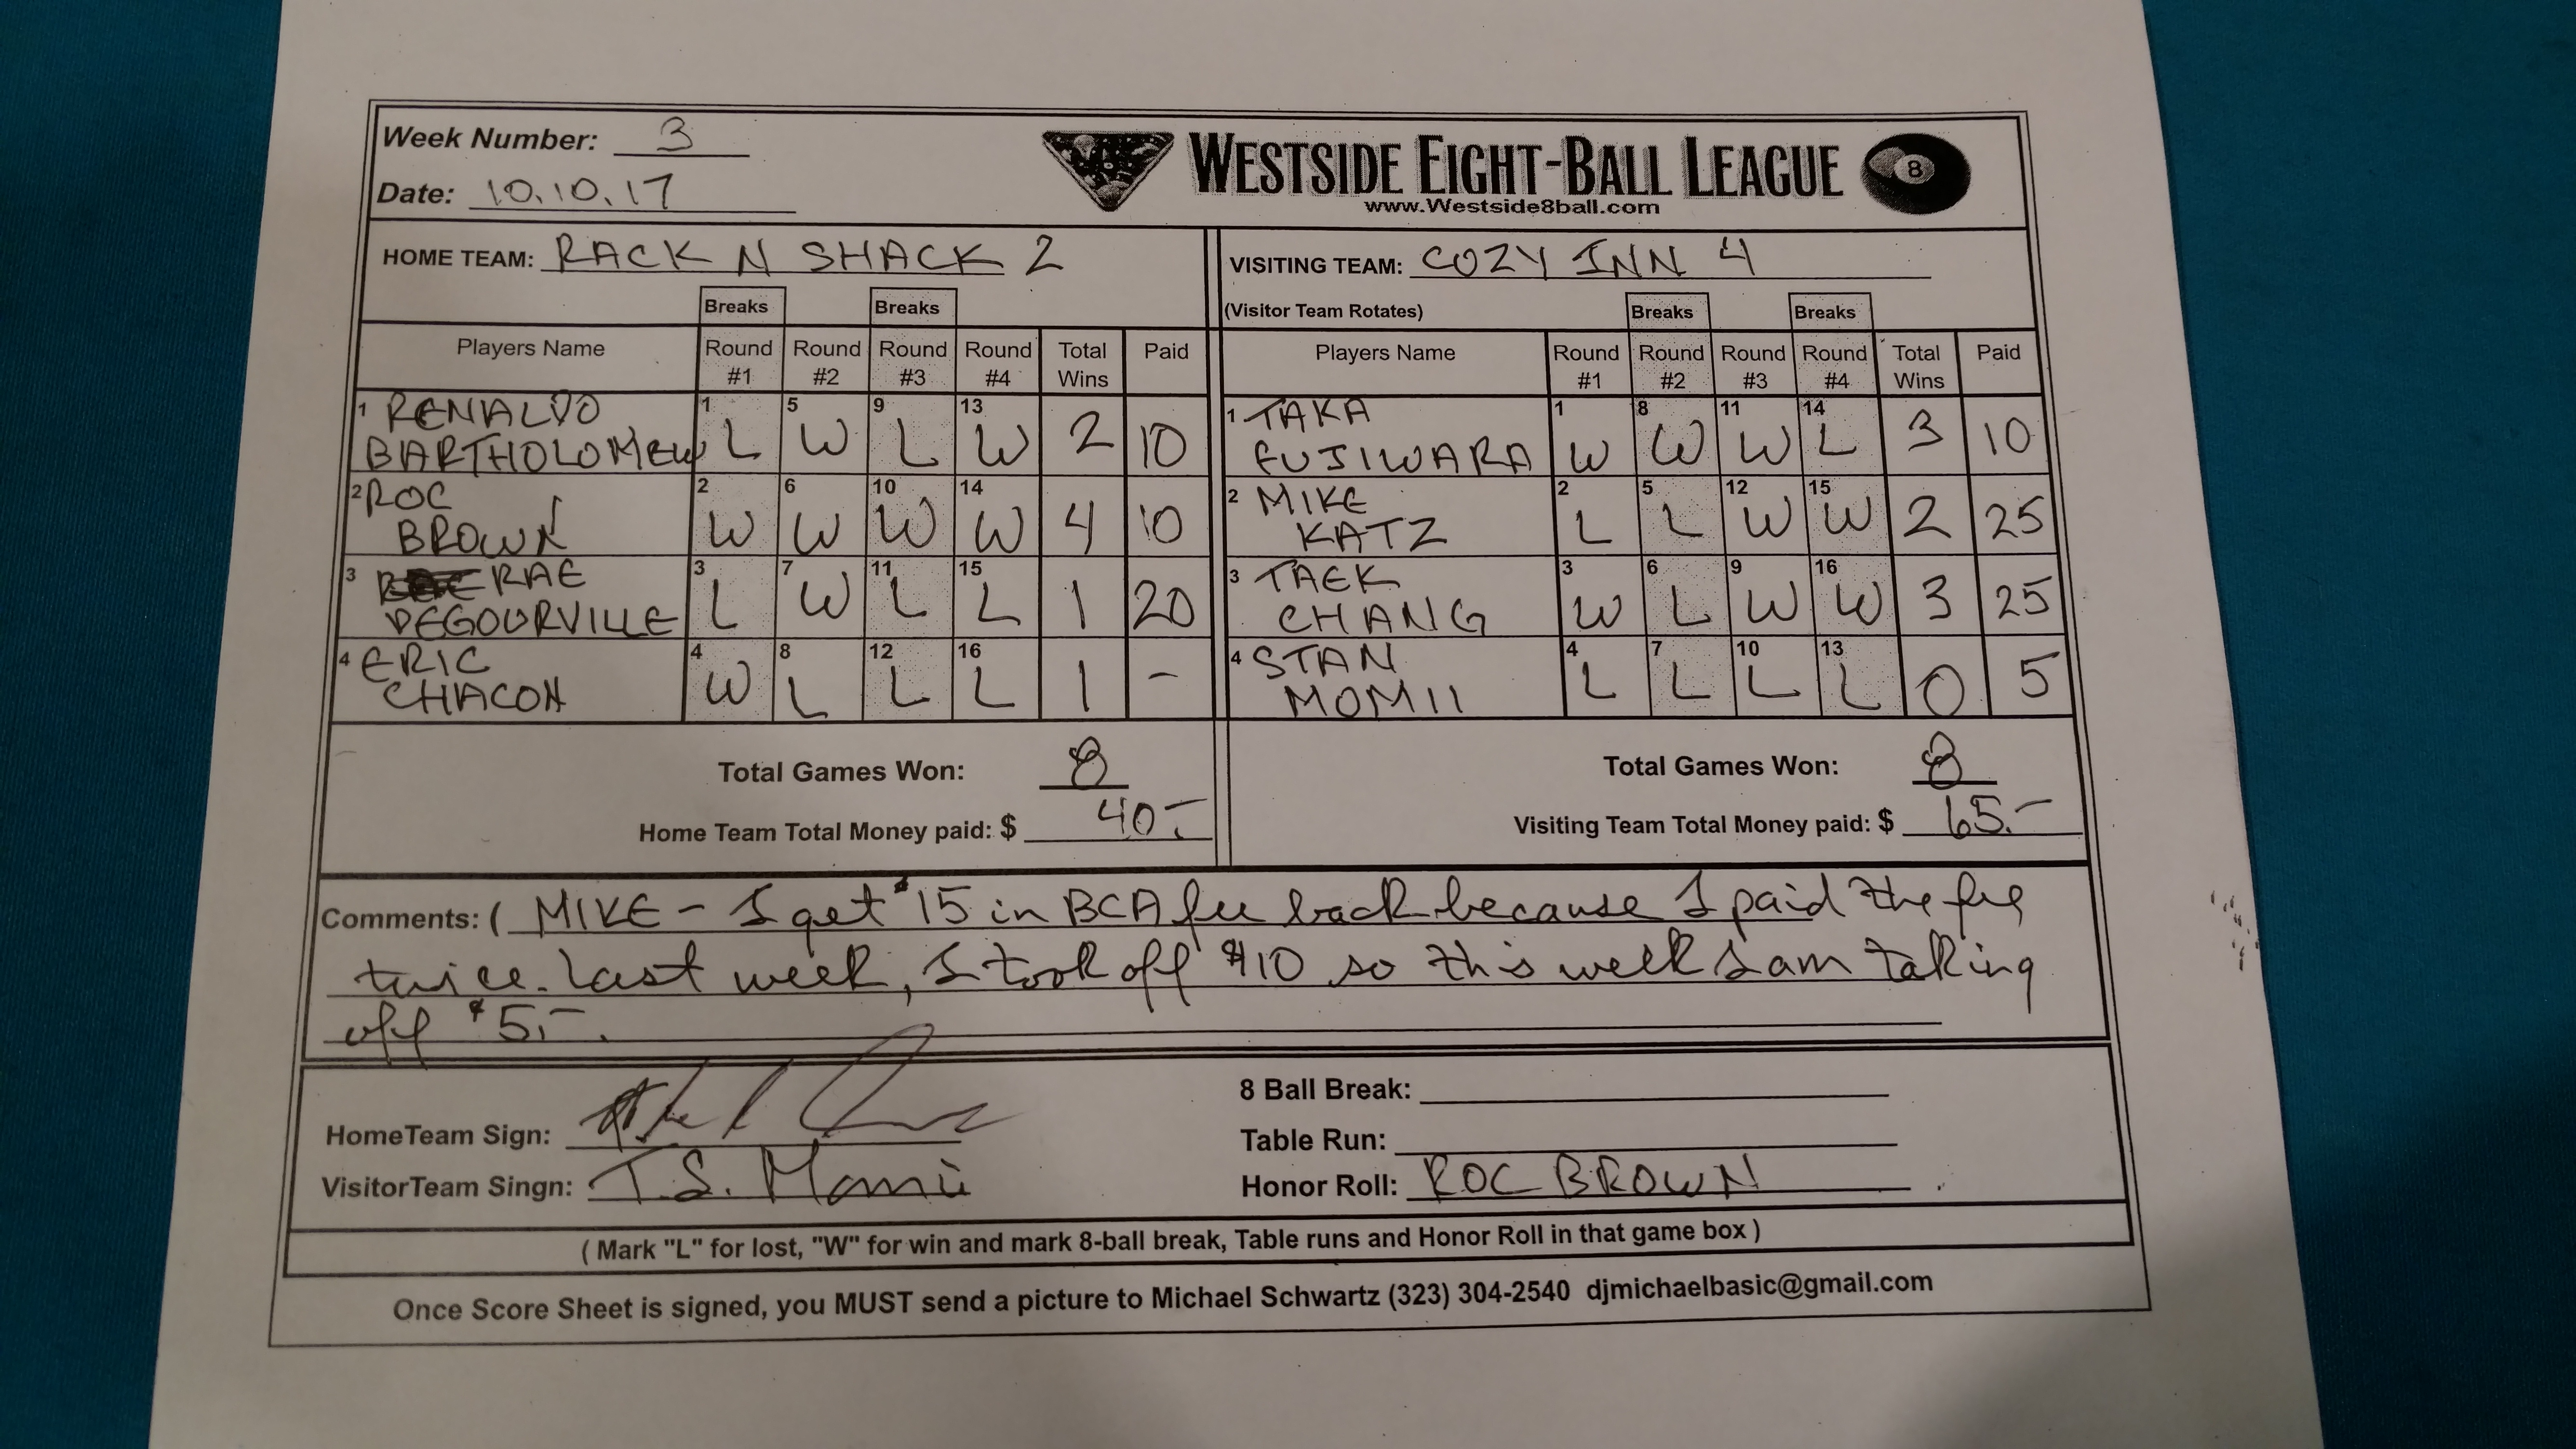 Week Number: 3
Date: 10.10.17
WESTSIDE EIGHT-BALL LEAGUE 8
www.Westside8ball.com
HOME TEAM: RACK N SHACK 2
VISITING TEAM: COZY INN 4
Breaks Breaks
(Visitor Team Rotates) Breaks Breaks
Players Name Round #1 Round #2 Round #3 Round #4 Total Wins Paid
1 RENALDO BARTHOLOMEW 1 L 5 W 9 L 13 W 2 10
2 ROC BROWN 2 W 6 W 10 W 14 W 4 10
3 RAE DEGOURVILLE 3 L 7 W 11 L 15 L 1 20
4 ERIC CHACON 4 W 8 L 12 L 16 L 1 -
Players Name Round #1 Round #2 Round #3 Round #4 Total Wins Paid
1 TAKA FUJIWARA 1 W 8 W 11 W 14 L 3 10
2 MIKE KATZ 2 L 5 L 12 W 15 W 2 25
3 TAEK CHANG 3 W 6 L 9 W 16 W 3 25
4 STAN MOMII 4 L 7 L 10 L 13 L 0 5
Total Games Won: 8
Home Team Total Money paid: $ 40.-
Total Games Won: 8
Visiting Team Total Money paid: $ 65.-
Comments: ( MIKE - I get $15 in BCA fee back because I paid the fee
twice. Last week, I took off $10 so this week I am taking
off $5.-.
HomeTeam Sign:
VisitorTeam Singn: T.S. Momii
8 Ball Break:
Table Run:
Honor Roll: ROC BROWN
( Mark "L" for lost, "W" for win and mark 8-ball break, Table runs and Honor Roll in that game box )
Once Score Sheet is signed, you MUST send a picture to Michael Schwartz (323) 304-2540 djmichaelbasic@gmail.com